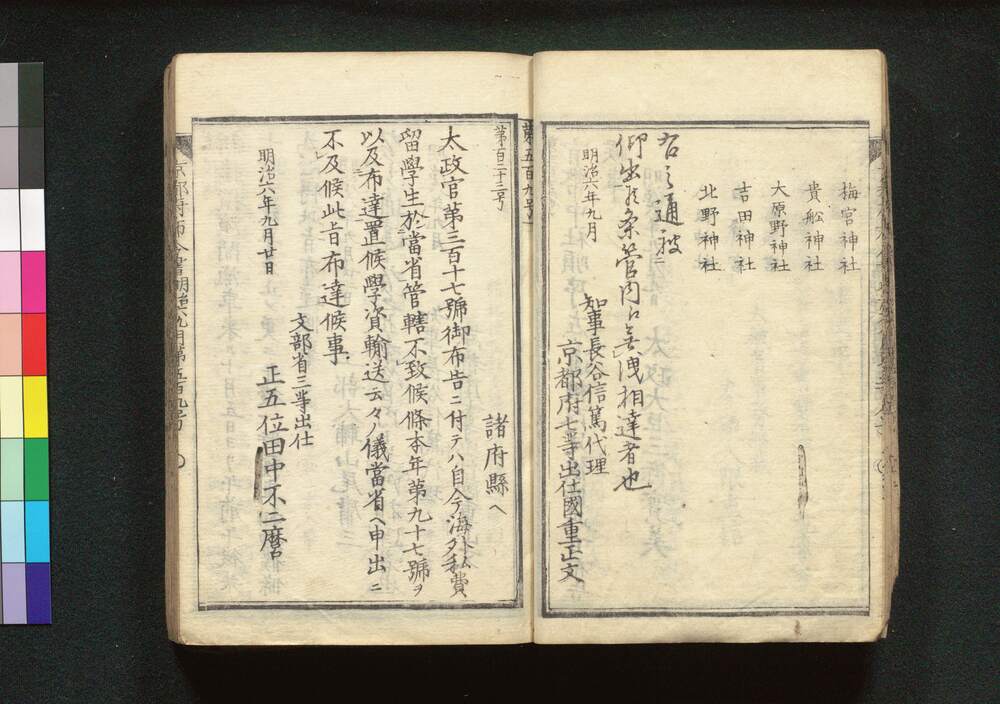 梅宮神社
貴舩神社
大原野神社
吉田神社
北野神社
右之通被
仰出候条管内江無洩相達者也
明治六年九月
知事長谷信篤代理
京都府七等出仕國重正文
第五百九号
第百二十三号
諸府縣ヘ
太政官第三百十七號御布告ニ付テハ自今海外私費
留學生於當省管轄不致候條本年第九十七號ヲ
以及布達置候學資輸送云々ノ儀當省ヘ申出ニ
不及候此旨布達候事
明治六年九月廿日
文部省三等出仕
正五位田中不二麿